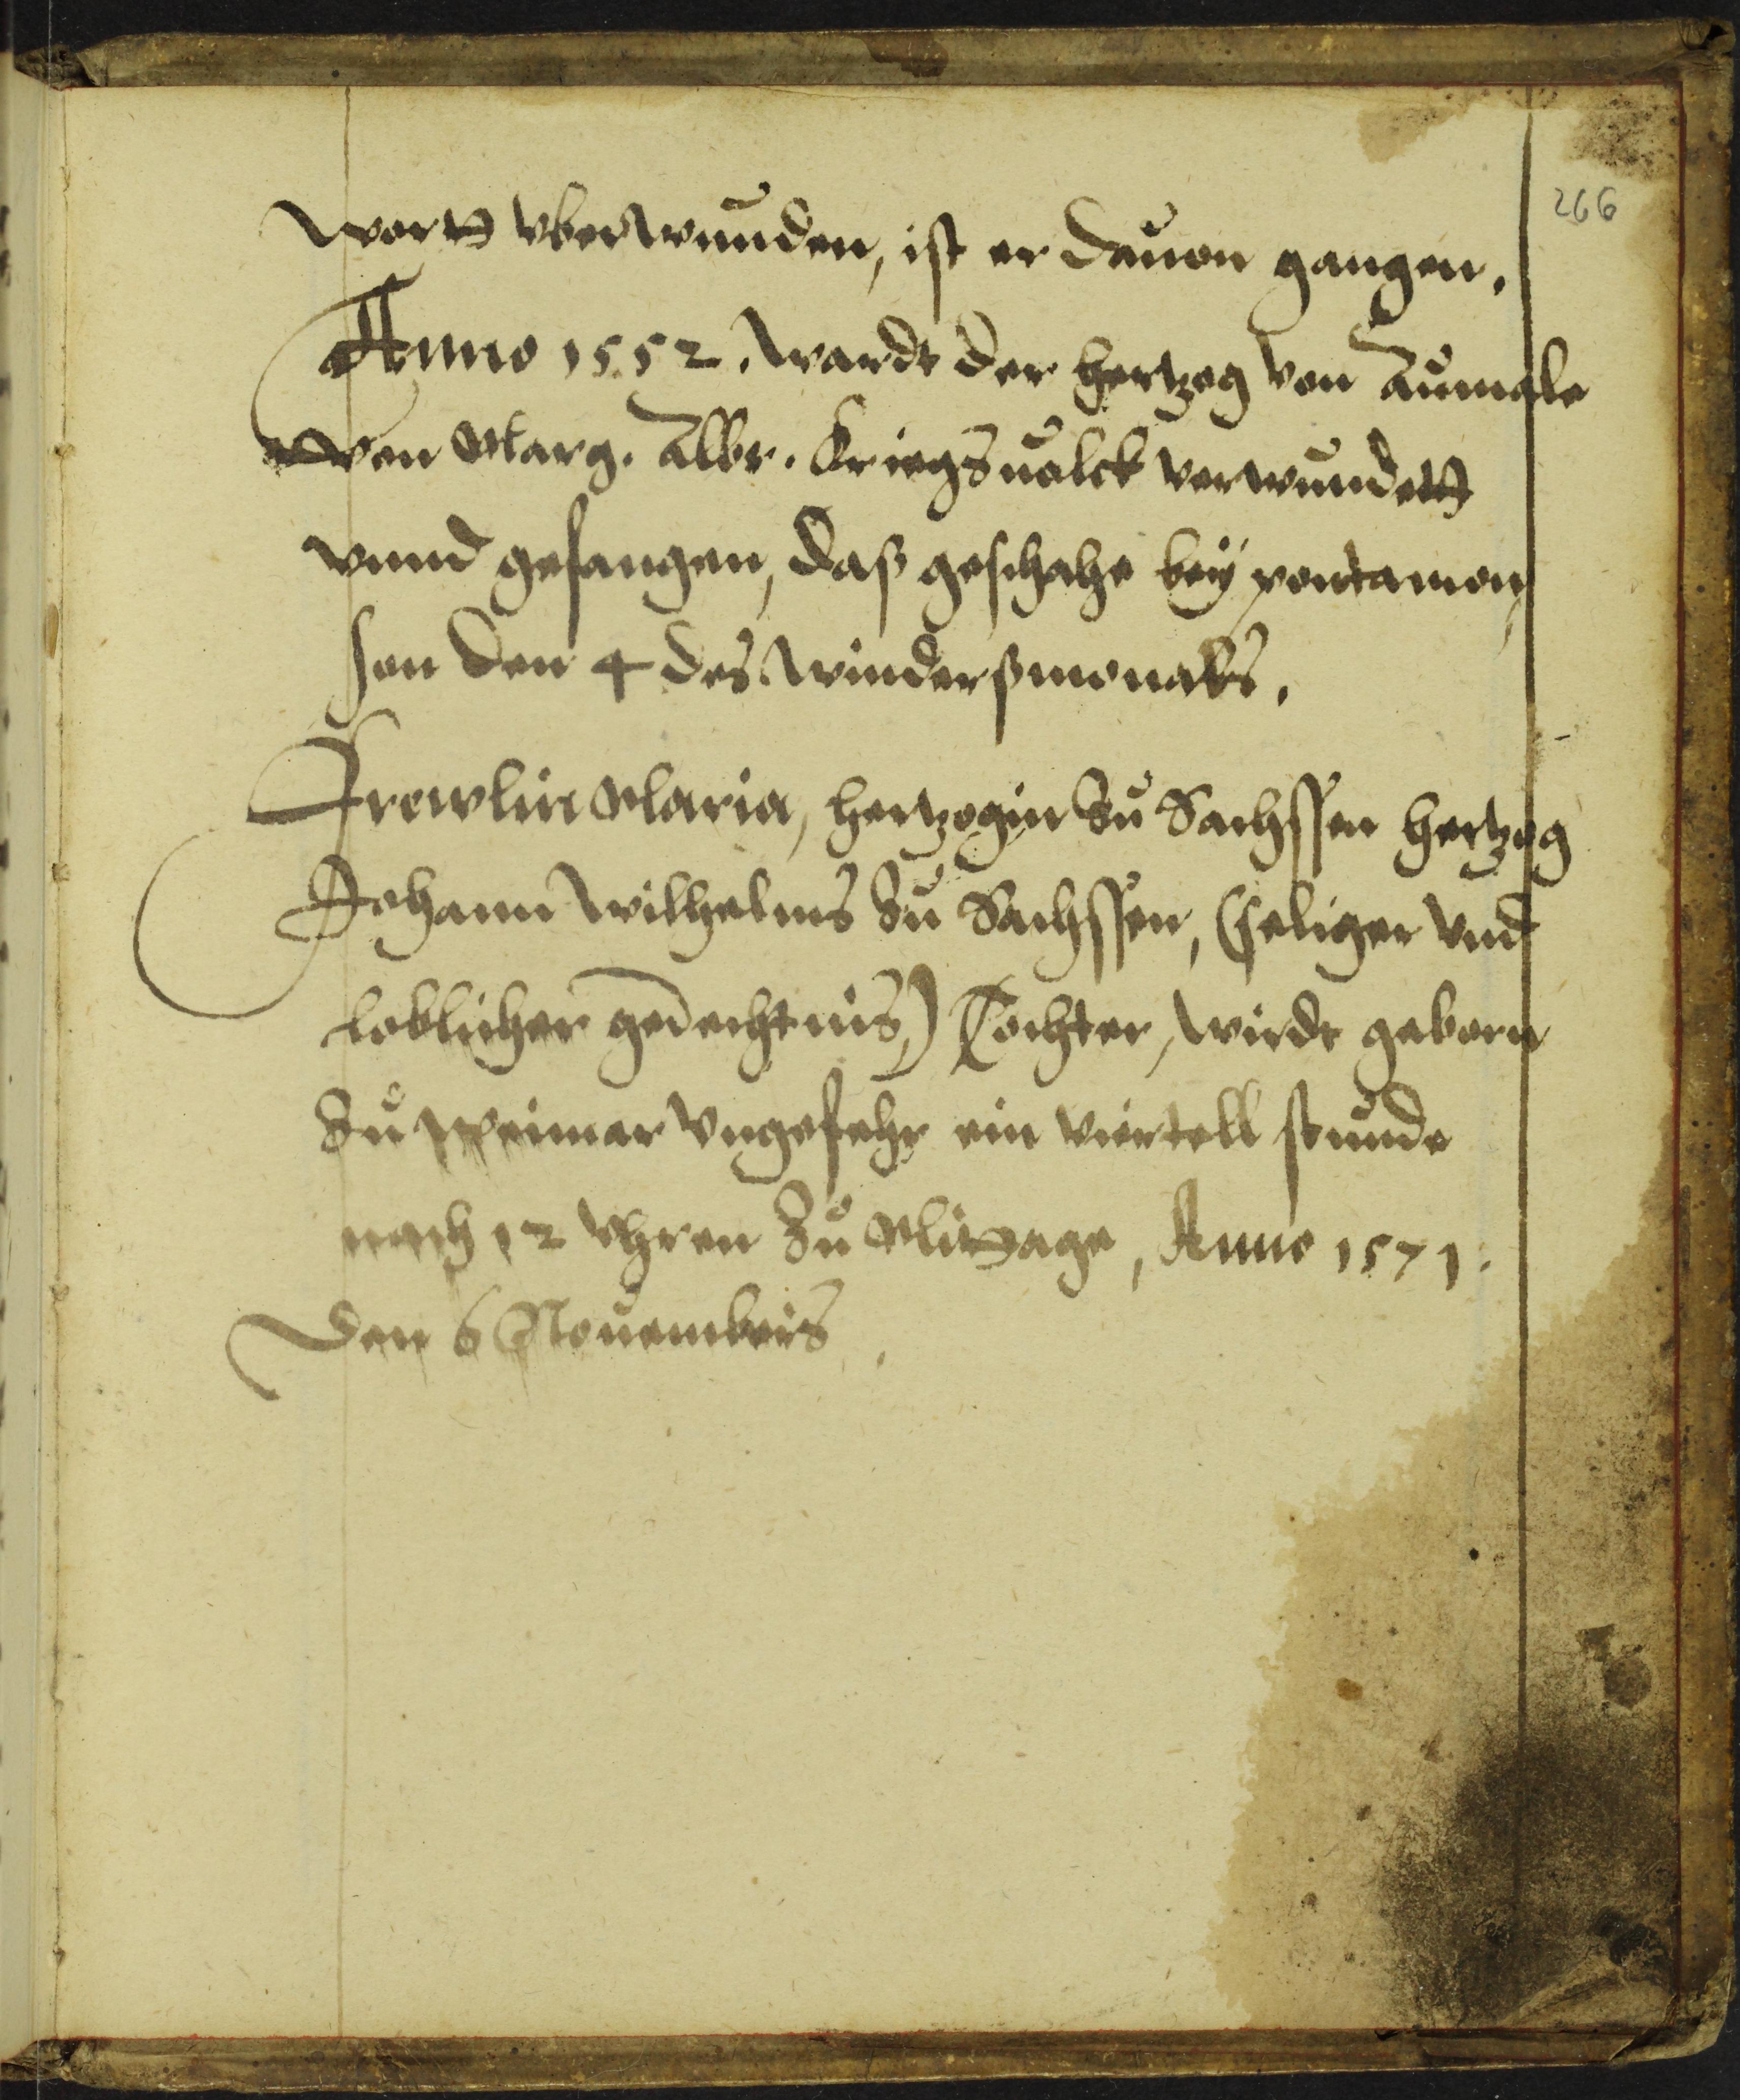 266
wortt vberwunden, ist er dauon gangen.
Anno 1552. wardt der hertzog von Aumale
von Marg. Albr. Kriegsuolck verwundett
vnnd gefangen, daß geschahe bey pontamon,
son den 4 des winderßmonats.
Frewlin Maria, hertzogin zu Sachssen hertzog
Johann Wilhelms zu Sachssen, (seliger vnd
loblicher gedechtnis,) Tochter, wirdt geborn
zu Weimar vngefehr ein viertell stunde
nach 12 vhren zu Mittage, Anno 1571.
den 6 Nouembris.